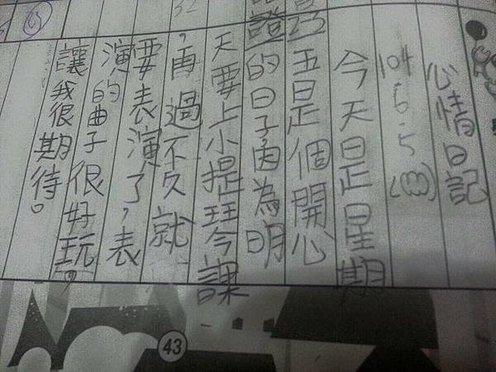 心情日記
104.6.5
今天是星期
五是個開心
的日子,因為明
天要上小提琴課
,再過不久就
要表演了,表
演的曲子很好玩,
讓我很期待。
43